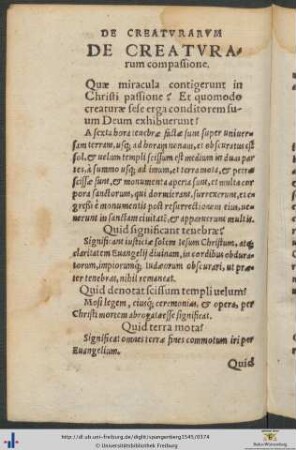 DE CREATVRARVM
DE CREATVRA-
rum compassione.
Quæ miracula contigerunt in
Christi passione? Et quomodo
creaturæ sese erga conditorem su-
um Deum exhibuerunt?
A sexta hora tenebræ factæ sunt super vniuer-
sam terram, usq; ad horam nonam, et obscuratus est
sol, & uelum templi scissum est medium in duas par
tes, à summo usq; ad imum, et terra mota, & petræ
scissæ sunt, & monumenta aperta sunt, et multa cor
pora sanctorum, qui dormierant, surrexerunt, et e-
gressi è monumentis post resurrectionem eius, ue-
nerunt in sanctam ciuitatē, & apparuerunt multis.
Quid significant tenebræ?
Significant iustitiæ solem Iesum Christum, atq;
claritatem Euangelij diuinam, in cordibus obdura-
torum, impiorumq; Iudæorum obscurari, ut præ-
ter tenebras, nihil remaneat.
Quid denotat scissum templi uelum?
Mosi legem, eiusq; ceremonias, & opera, per
Christi mortem abrogata esse significat.
Quid terra mota?
Significat omnes terræ fines commotum iri per
Euangelium.
Quid
http://dl.ub.uni-freiburg.de/diglit/spangenberg1545/0374
© Universitätsbibliothek Freiburg
Baden-Württemberg